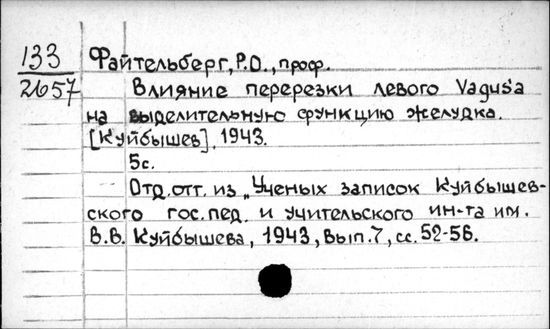 133
2657
Файтельберг, Р.О., проф.
Влияние перерезки левого Vagus'a
на выделительную функцию желудка.
[Куйбышев], 1943.
5с.
Отд.отт. из „Ученых записок Куйбышев-
ского гос.пед. и учительского ин-та им.
В.В. Куйбышева, 1943, Вып.7, сс. 52-56.